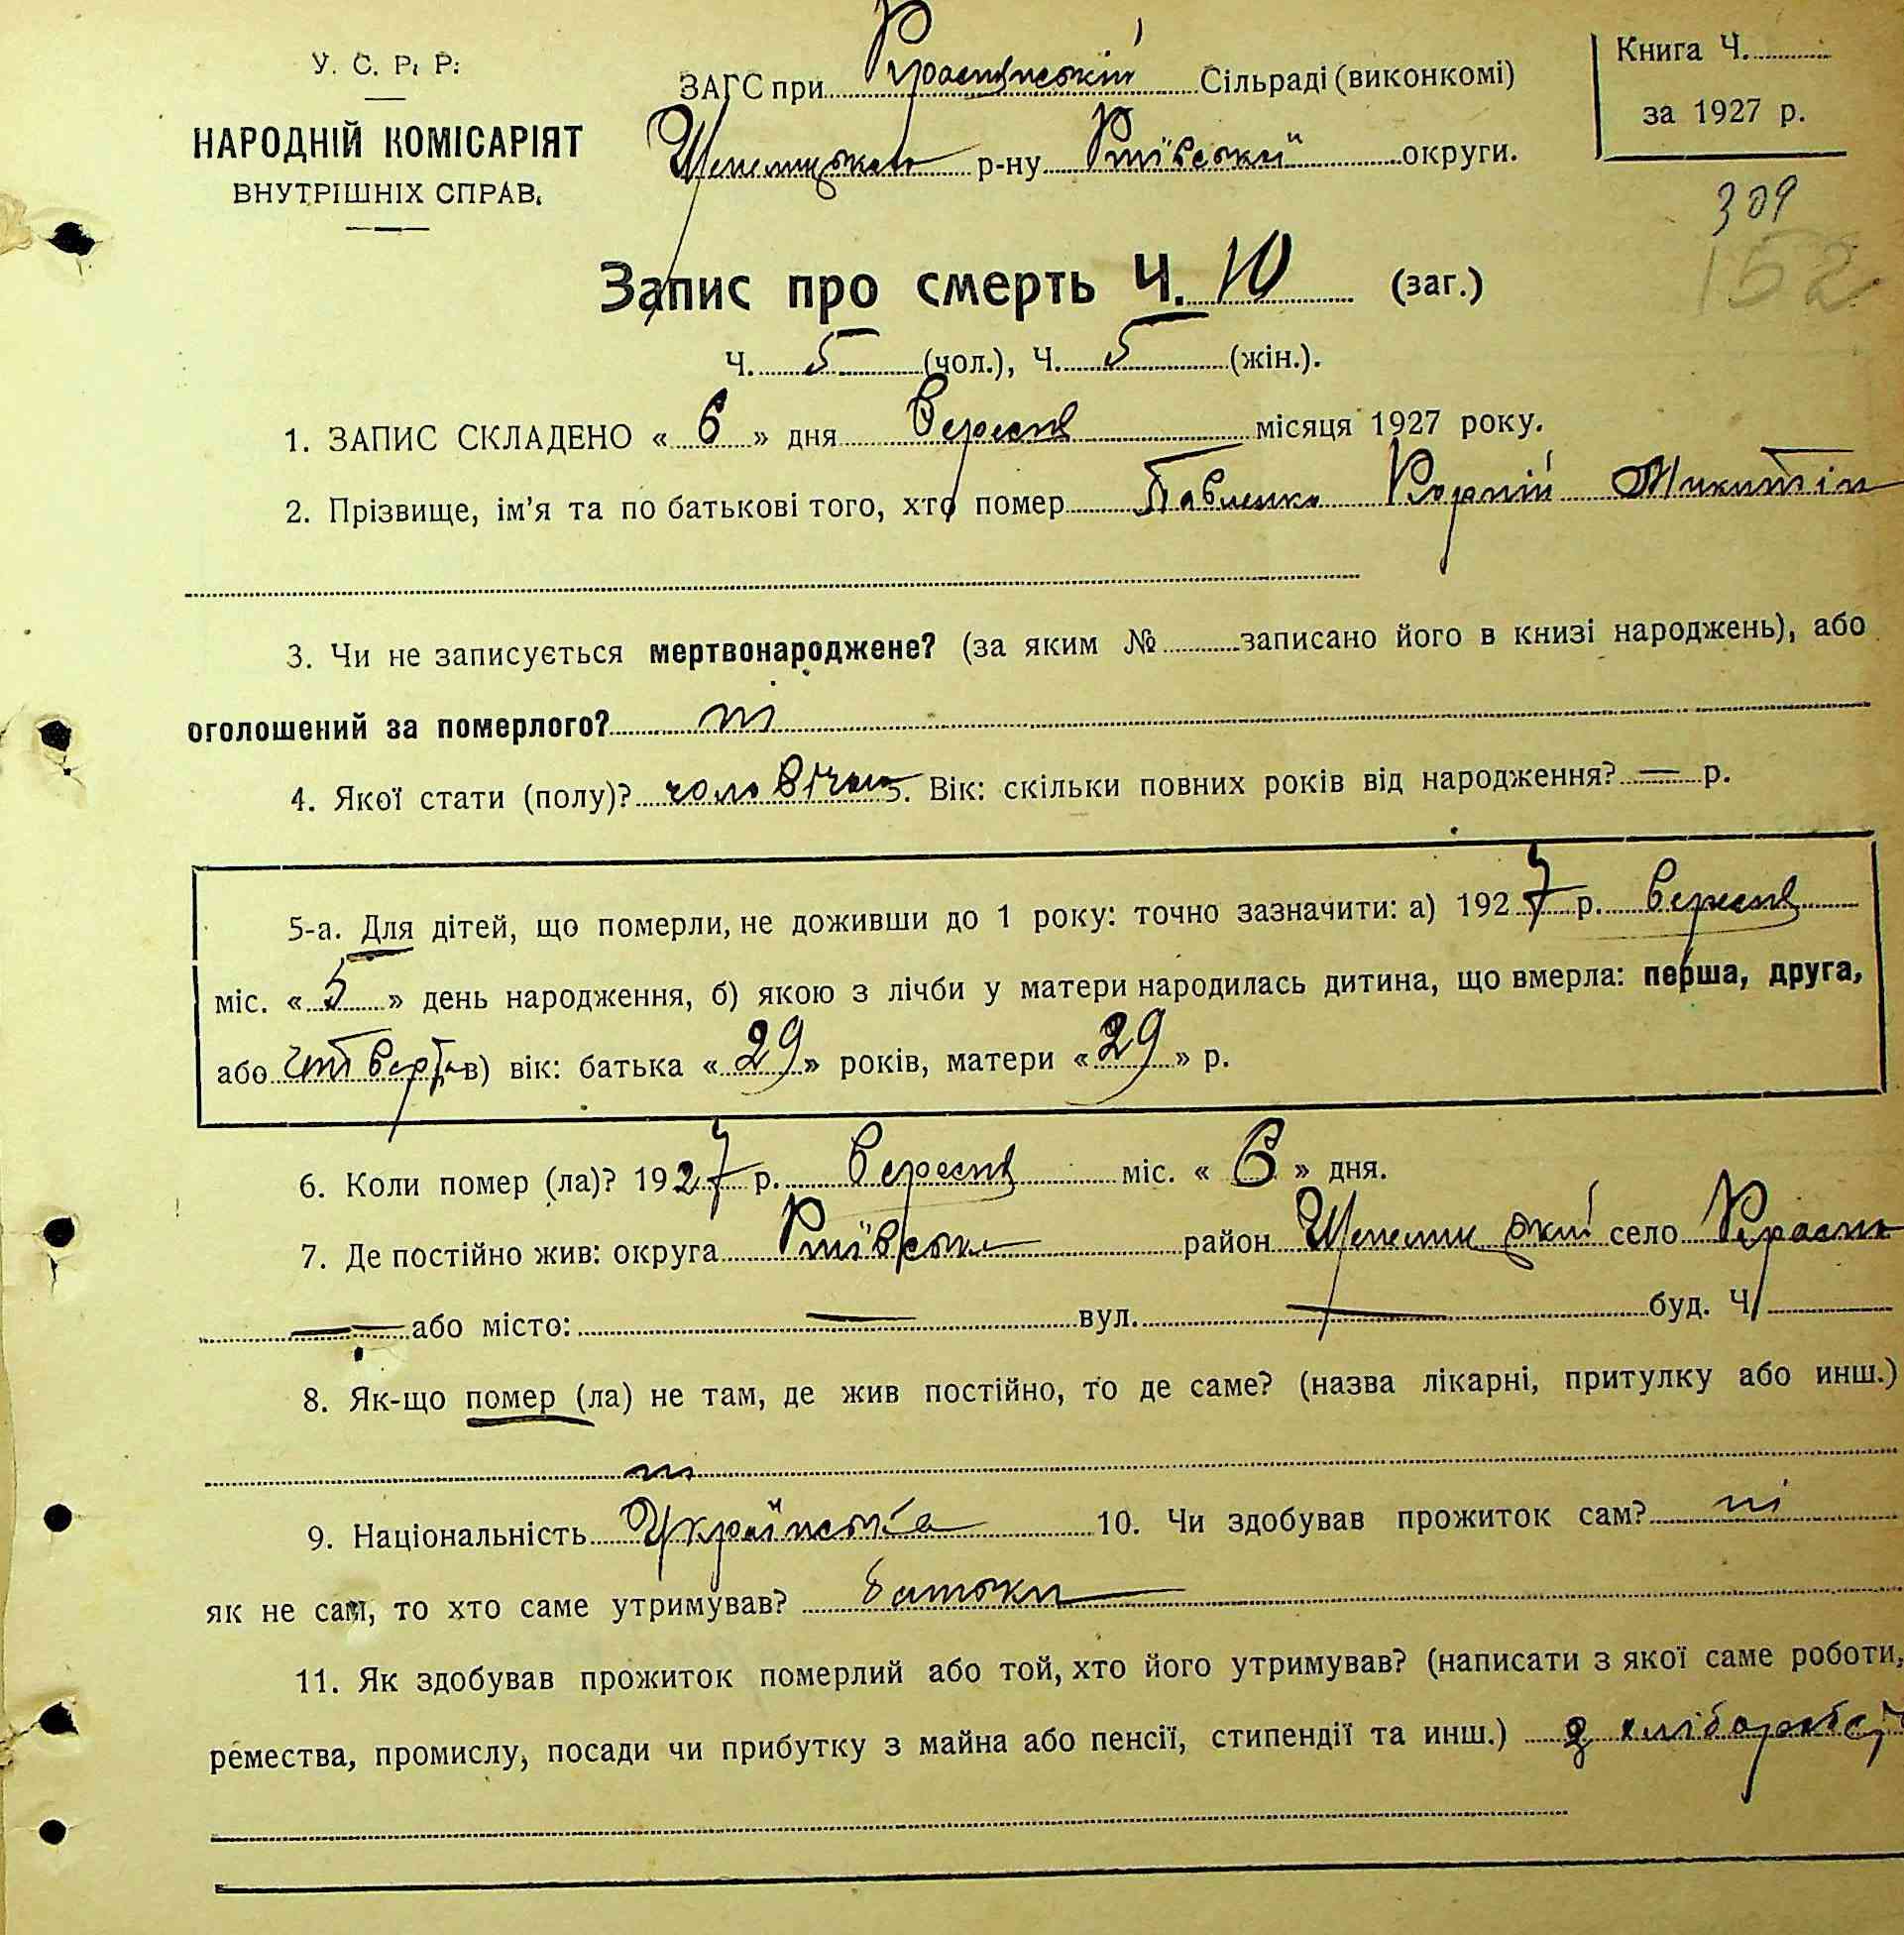 У. С. Р. Р.
НАРОДНІЙ КОМІСАРІЯТ
ВНУТРІШНІХ СПРАВ.
ЗАГС при Краснянській Сільраді (виконкомі)
р-ну Київської округи.
Книга Ч.
за 1927 р.
309
152
Запис про смерть Ч. 10 (заг.)
Ч. 5 (чол.), Ч. 5 (жін.).
1. ЗАПИС СКЛАДЕНО « 6 » дня Вересня місяця 1927 року.
2. Прізвище, ім'я та по батькові того, хто помер Павленко Корній Микитін
3. Чи не записується мертвонароджене? (за яким № записано його в книзі народжень), або
оголошений за померлого? ні
4. Якої стати (полу)? чоловічої 5. Вік: скільки повних років від народження? — р.
5-а. Для дітей, що померли, не доживши до 1 року: точно зазначити: а) 1927 р. вересня
міс. « 5 » день народження, б) якою з лічби у матери народилась дитина, що вмерла: перша, друга,
або четверта в) вік: батька « 29 » років, матери « 29 » р.
6. Коли помер (ла)? 1927 р. вересня міс. « 6 » дня.
7. Де постійно жив: округа Київська район село Красне
— або місто: — вул. — буд. Ч.
8. Як-що помер (ла) не там, де жив постійно, то де саме? (назва лікарні, притулку або инш.)
ні
9. Національність Українська 10. Чи здобував прожиток сам? ні
як не сам, то хто саме утримував? батьки
11. Як здобував прожиток померлий або той, хто його утримував? (написати з якої саме роботи,
ремества, промислу, посади чи прибутку з майна або пенсії, стипендії та инш.) з